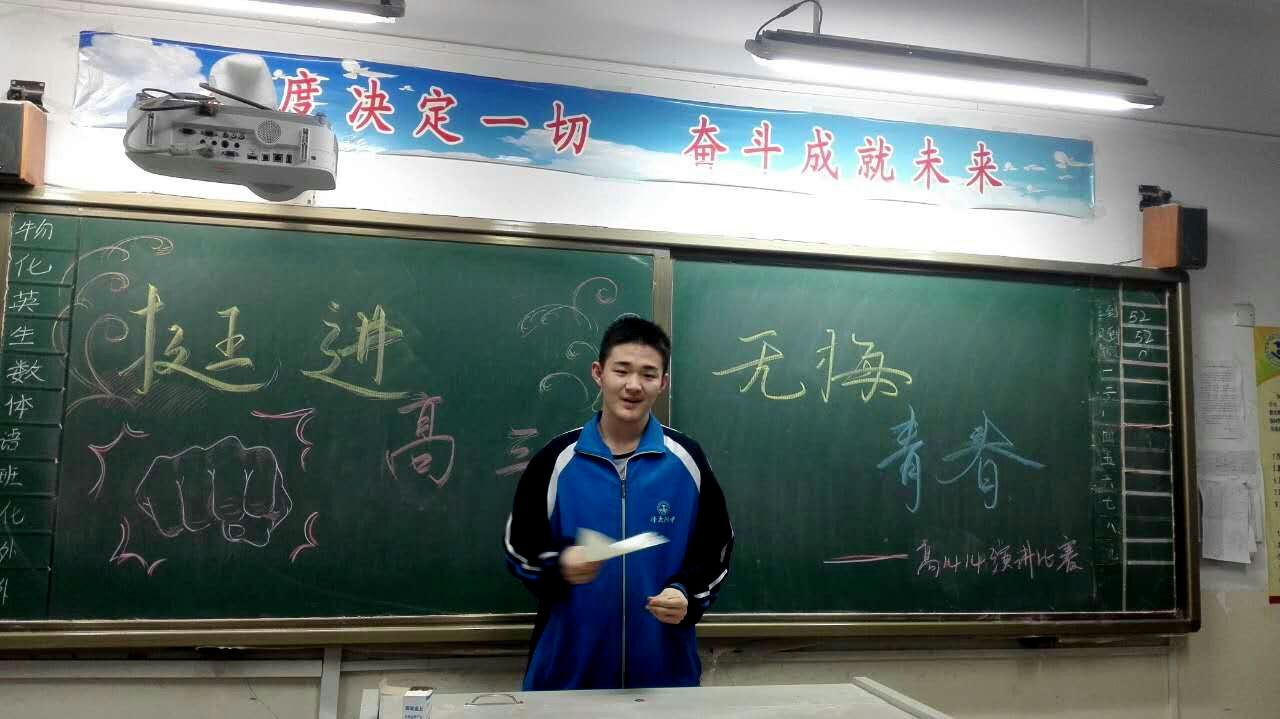 度决定一切 奋斗成就未来
物
化
英
生
数
体
语
班
化
外
外
挺进
高三
无悔
青春
——高1414演讲比赛
应到 52
实到 52
0
一
二
四
五
六
七
八